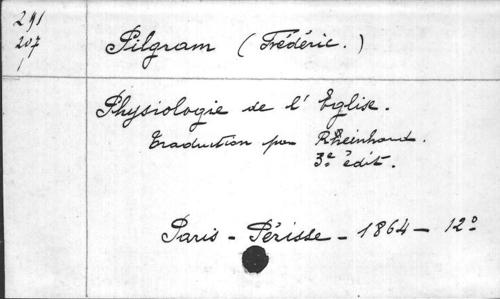 291
207
1
Pilgram (Frédéric.)
Physiologie de l' Eglise.
Traduction par Rheinhard.
3e édit.
Paris - Périsse - 1864 - 12°